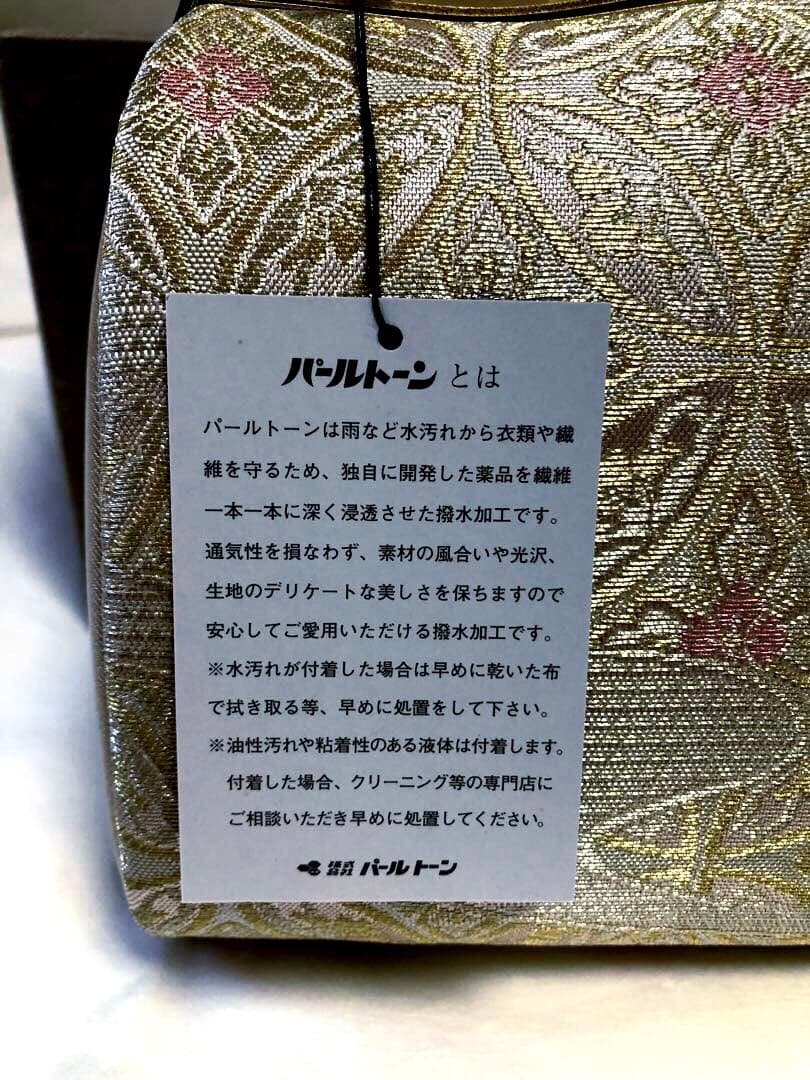 パールトーンとは
パールトーンは雨など水汚れから衣類や繊
維を守るため、独自に開発した薬品を繊維
一本一本に深く浸透させた撥水加工です。
通気性を損なわず、素材の風合いや光沢、
生地のデリケートな美しさを保ちますので
安心してご愛用いただける撥水加工です。
※水汚れが付着した場合は早めに乾いた布
で拭き取る等、早めに処置をして下さい。
※油性汚れや粘着性のある液体は付着します。
付着した場合、クリーニング等の専門店に
ご相談いただき早めに処置してください。
株式会社 パールトーン